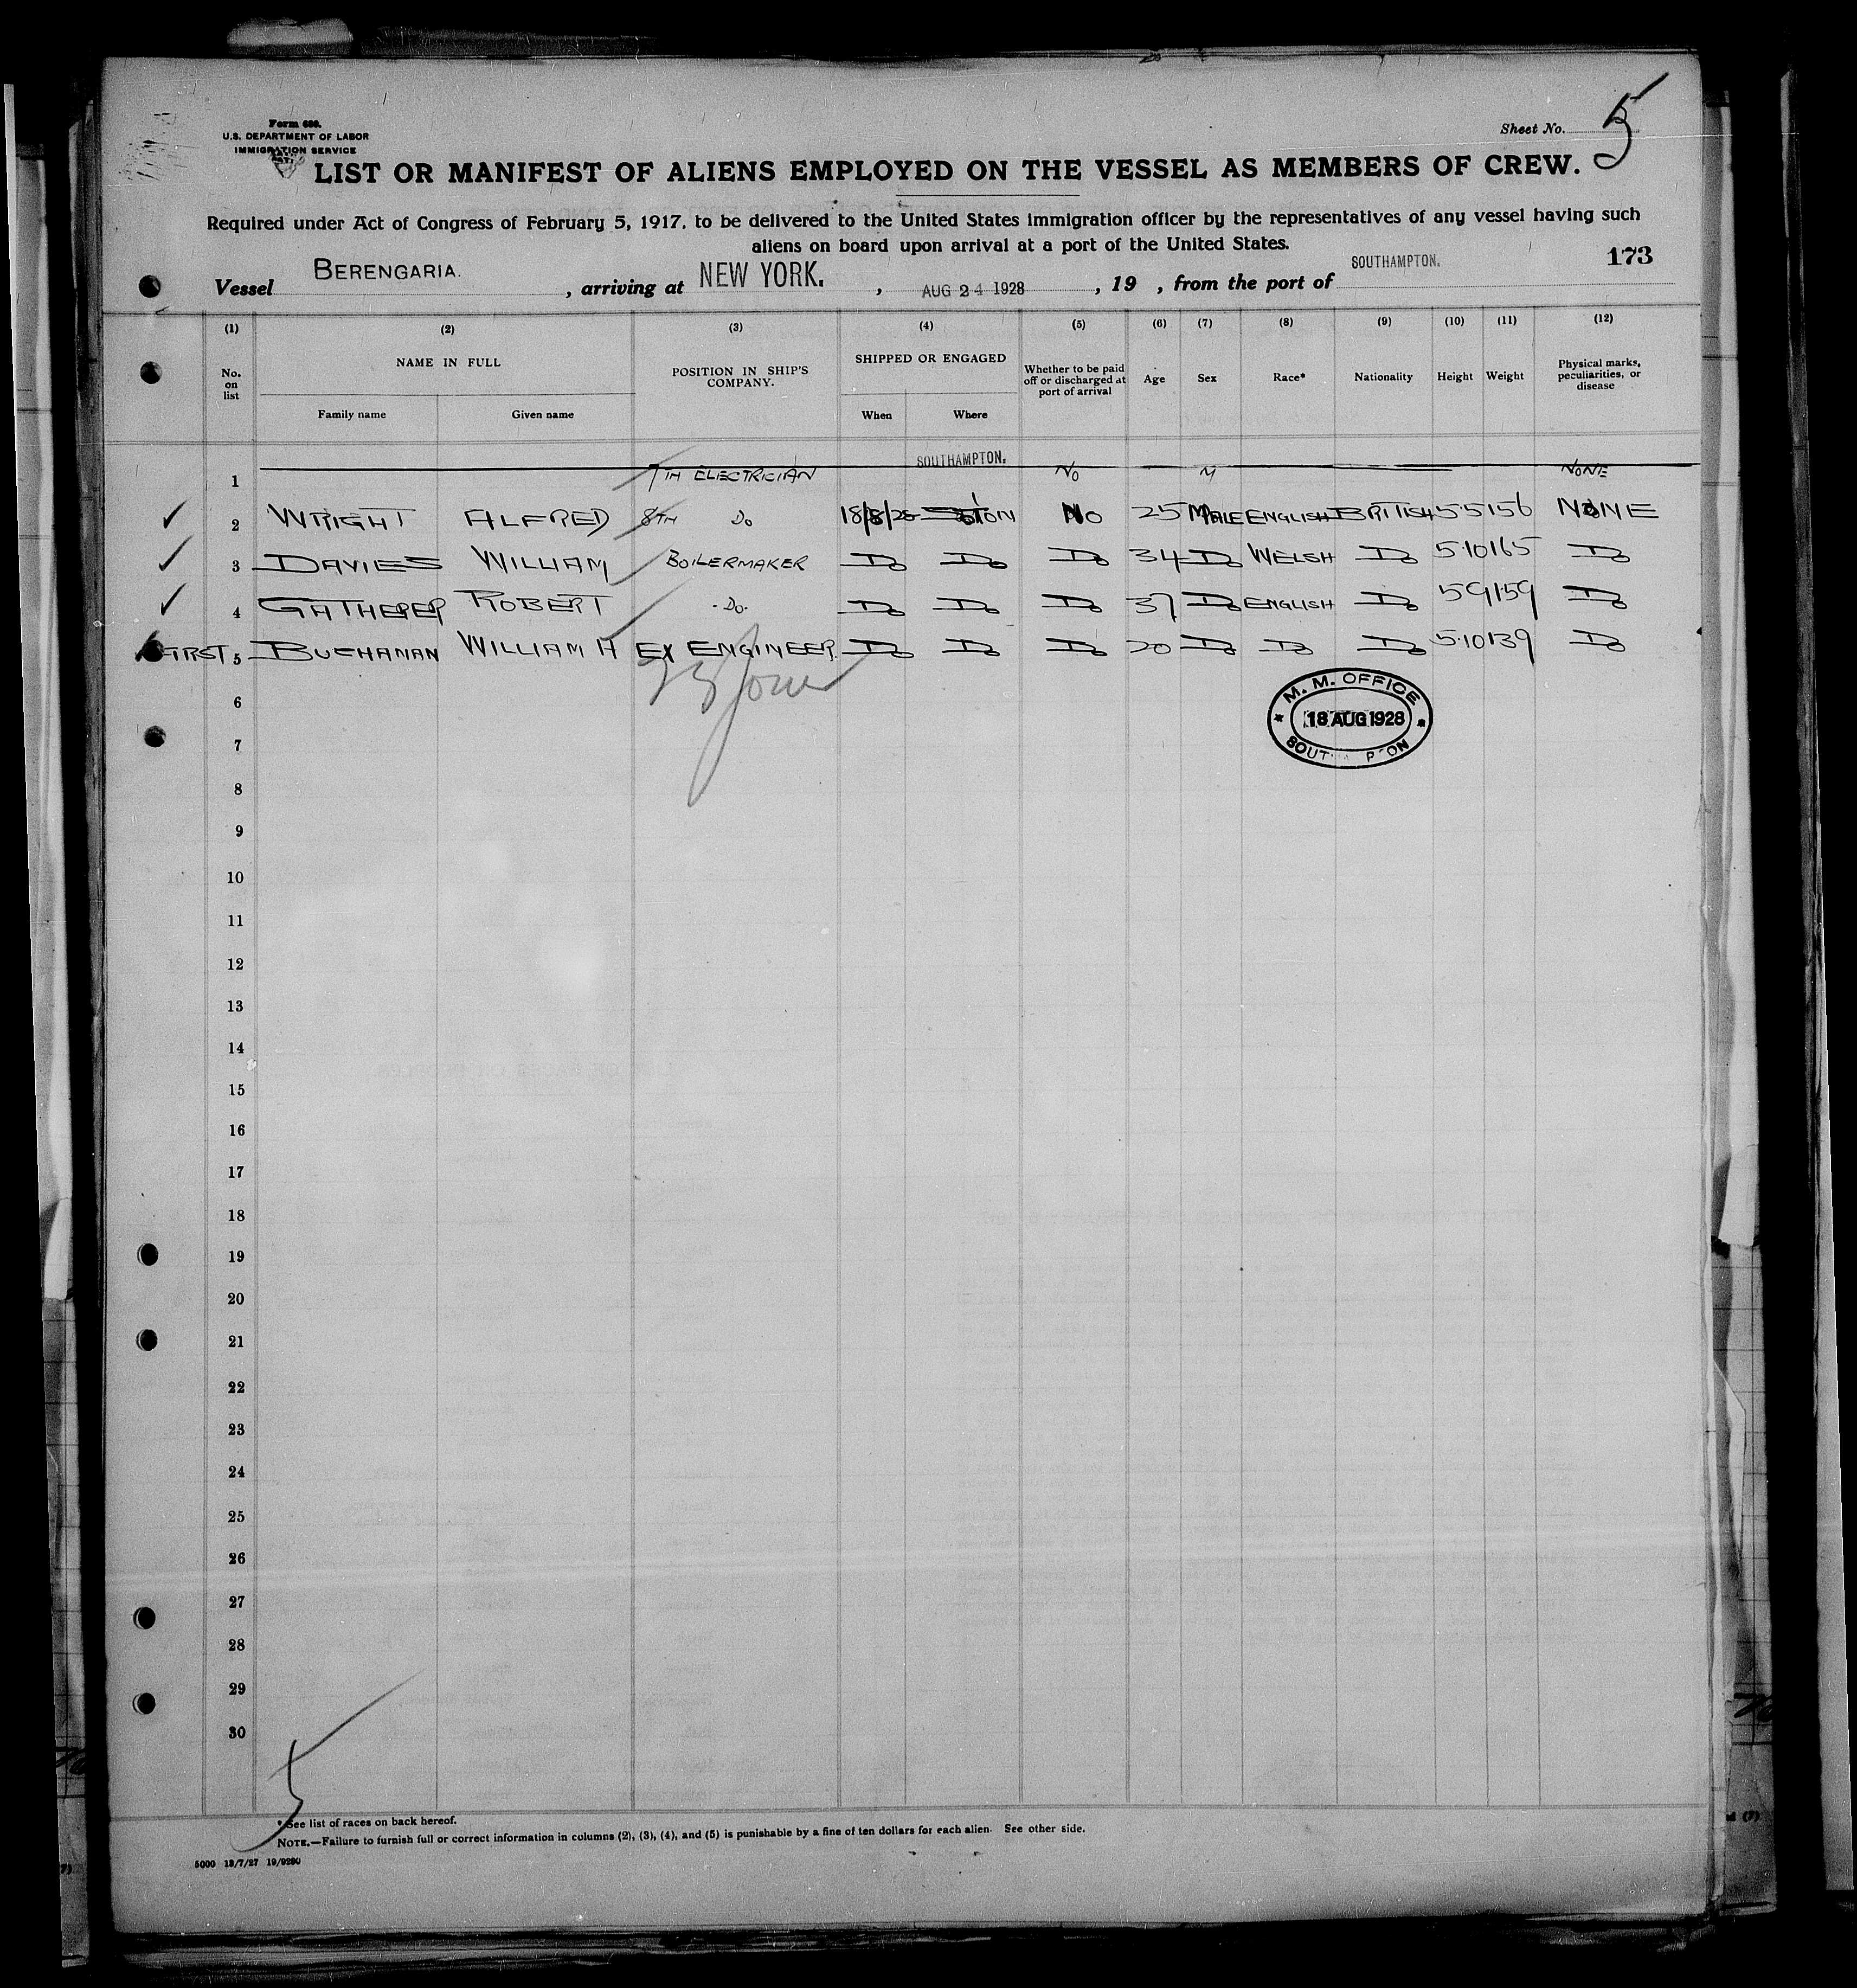 Form 680.
U.S. DEPARTMENT OF LABOR
IMMIGRATION SERVICE
Sheet No. 5
LIST OR MANIFEST OF ALIENS EMPLOYED ON THE VESSEL AS MEMBERS OF CREW.
Required under Act of Congress of February 5, 1917, to be delivered to the United States immigration officer by the representatives of any vessel having such
aliens on board upon arrival at a port of the United States.
173
Vessel BERENGARIA. , arriving at NEW YORK. , AUG 24 1928 , 19 , from the port of SOUTHAMPTON.
(1) (2) (3) (4) (5) (6) (7) (8) (9) (10) (11) (12)
No. on list NAME IN FULL POSITION IN SHIP'S COMPANY. SHIPPED OR ENGAGED Whether to be paid off or discharged at port of arrival Age Sex Race* Nationality Height Weight Physical marks, peculiarities, or disease
Family name Given name When Where
1 7TH ELECTRICIAN SOUTHAMPTON. No M NONE
2 WRIGHT ALFRED 8TH Do 18/8/28 S'TON No 25 MALE ENGLISH BRITISH 5·5 156 NONE
3 DAVIES WILLIAM BOILERMAKER Do Do Do 34 Do WELSH Do 5·10 165 Do
4 GATHERER ROBERT -Do- Do Do Do 37 Do ENGLISH Do 5 9 159 Do
FIRST 5 BUCHANAN WILLIAM H EX ENGINEER. Do Do Do 20 Do Do Do 5·10 139 Do
M. M. OFFICE
18 AUG 1928
SOUT P ON
6
7
8
9
10
11
12
13
14
15
16
17
18
19
20
21
22
23
24
25
26
27
28
29
30
5
* See list of races on back hereof.
NOTE.—Failure to furnish full or correct information in columns (2), (3), (4), and (5) is punishable by a fine of ten dollars for each alien. See other side.
5000 13/7/27 19/9290